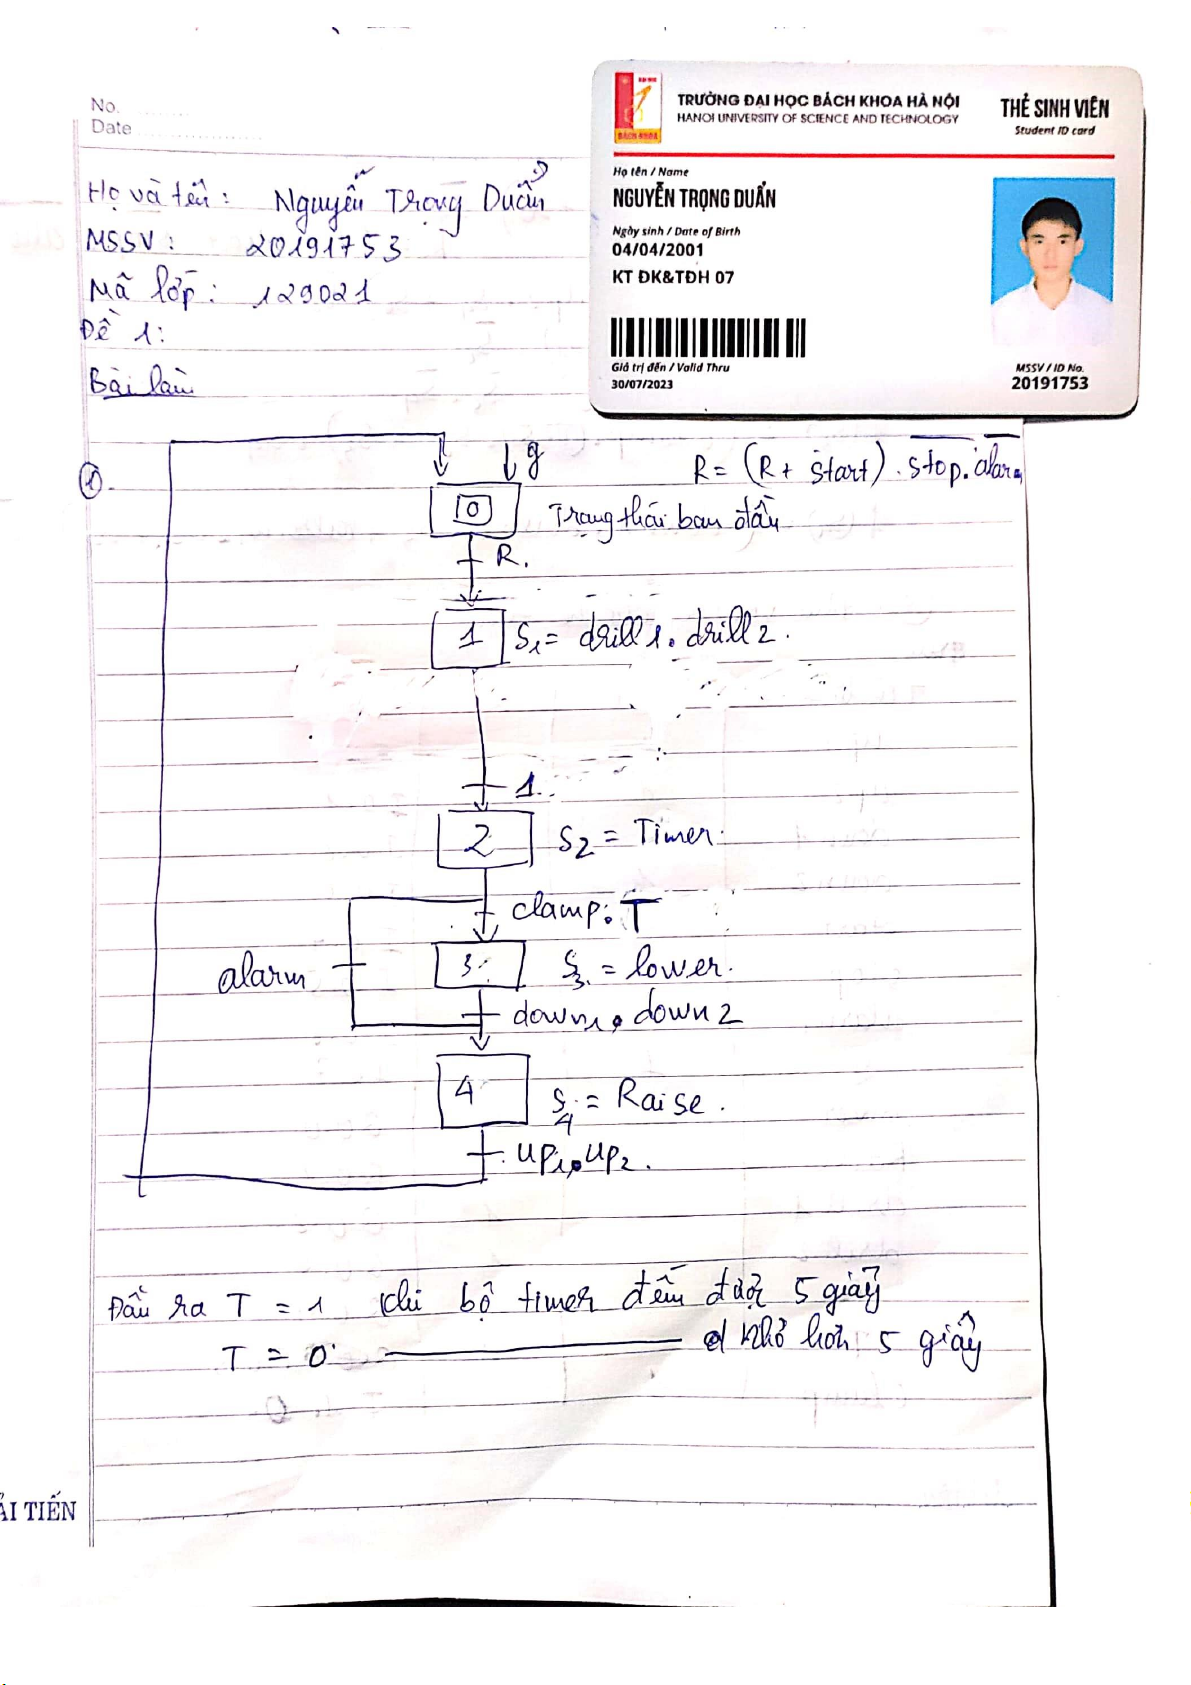 No.
Date
TRƯỜNG ĐẠI HỌC BÁCH KHOA HÀ NỘI
HANOI UNIVERSITY OF SCIENCE AND TECHNOLOGY
THẺ SINH VIÊN
Student ID card
BÁCH KHOA
Họ tên / Name
NGUYỄN TRỌNG DUẨN
Ngày sinh / Date of Birth
04/04/2001
KT ĐK&TĐH 07
Giá trị đến / Valid Thru
30/07/2023
MSSV / ID No.
20191753
Họ và tên : Nguyễn Trọng Duẩn
MSSV : 20191753
Mã lớp : 129021
Đề 1:
Bài làm
1.
g
R = (R + start) . \overline{stop} . \overline{alarm}
0 Trạng thái ban đầu
R.
1 S1 = drill 1 . drill 2 .
1.
2 S2 = Timer.
clamp . T
alarm
3 S3 = lower.
down1 . down 2
4 S4 = Raise .
up1 . up2 .
Đầu ra T = 1 khi bộ timer đếm được 5 giây
T = 0 ———— nhỏ hơn 5 giây
ẢI TIẾN